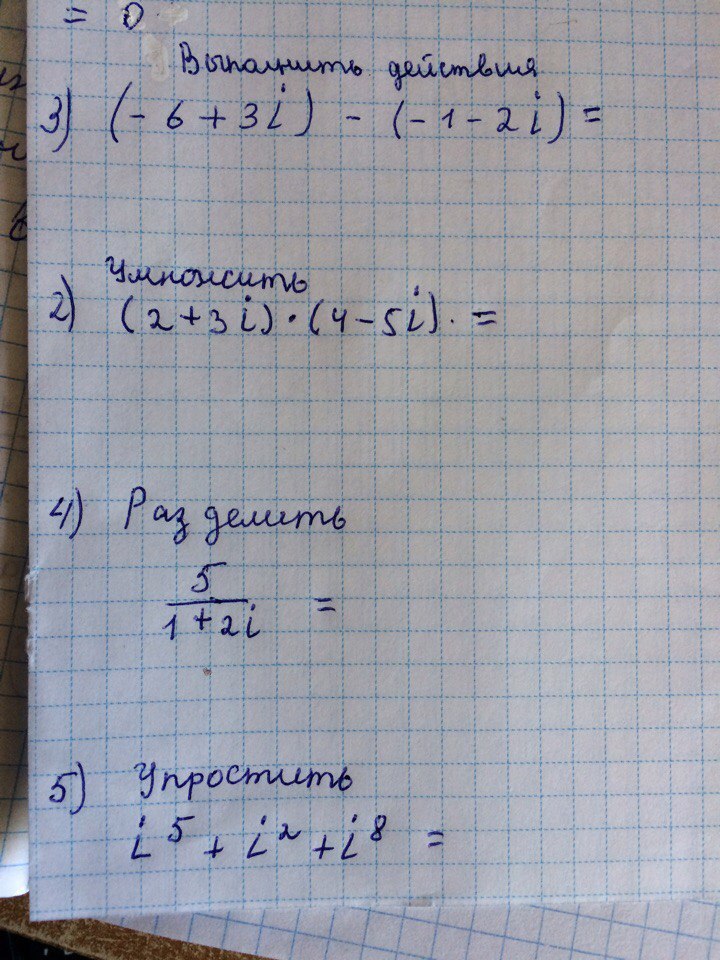 = 0
Выполнить действия
3) (-6+3i) - (-1-2i) =
Умножить
2) (2+3i)·(4-5i). =
4) Раз делить
5
1+2i =
5) Упростить
i⁵ + i² + i⁸ =